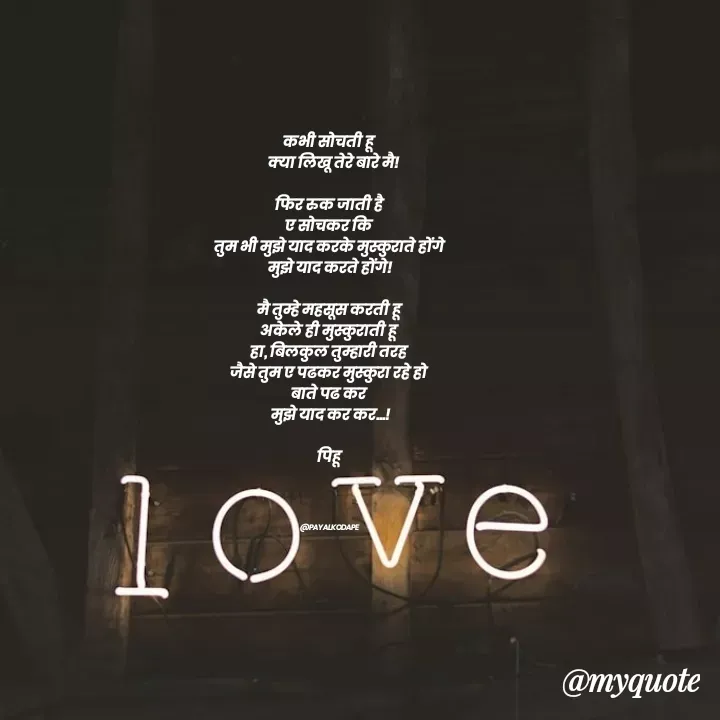 कभी सोचती हू
क्या लिखू तेरे बारे मै!
फिर रुक जाती है
ए सोचकर कि
तुम भी मुझे याद करके मुस्कुराते होंगे
मुझे याद करते होंगे!
मै तुम्हे महसूस करती हू
अकेले ही मुस्कुराती हू
हा, बिलकुल तुम्हारी तरह
जैसे तुम ए पढकर मुस्कुरा रहे हो
बाते पढ कर
मुझे याद कर कर...!
पिहू
love
@PAYALKODAPE
@myquote